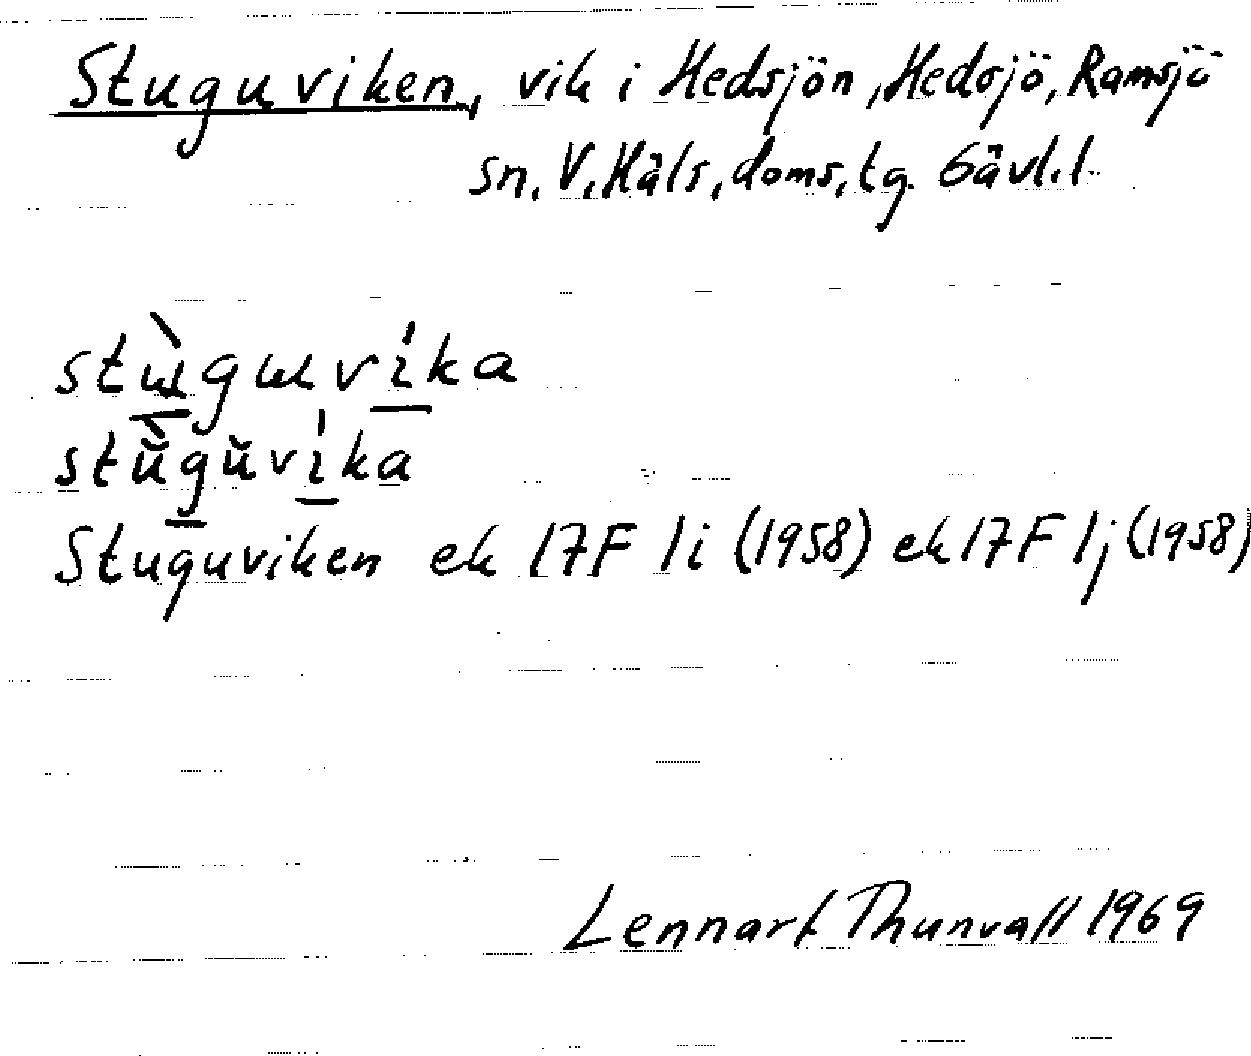 Stuguviken, vik i Hedsjön, Hedsjö, Ramsjö
sn. V. Häls, doms, tg. Gävl. l.
stɯ̀gɯvíka
stŭ̀gŭvíka
Stuguviken ek 17F 1i (1958) ek 17F 1j (1958)
Lennart Thunvall 1969